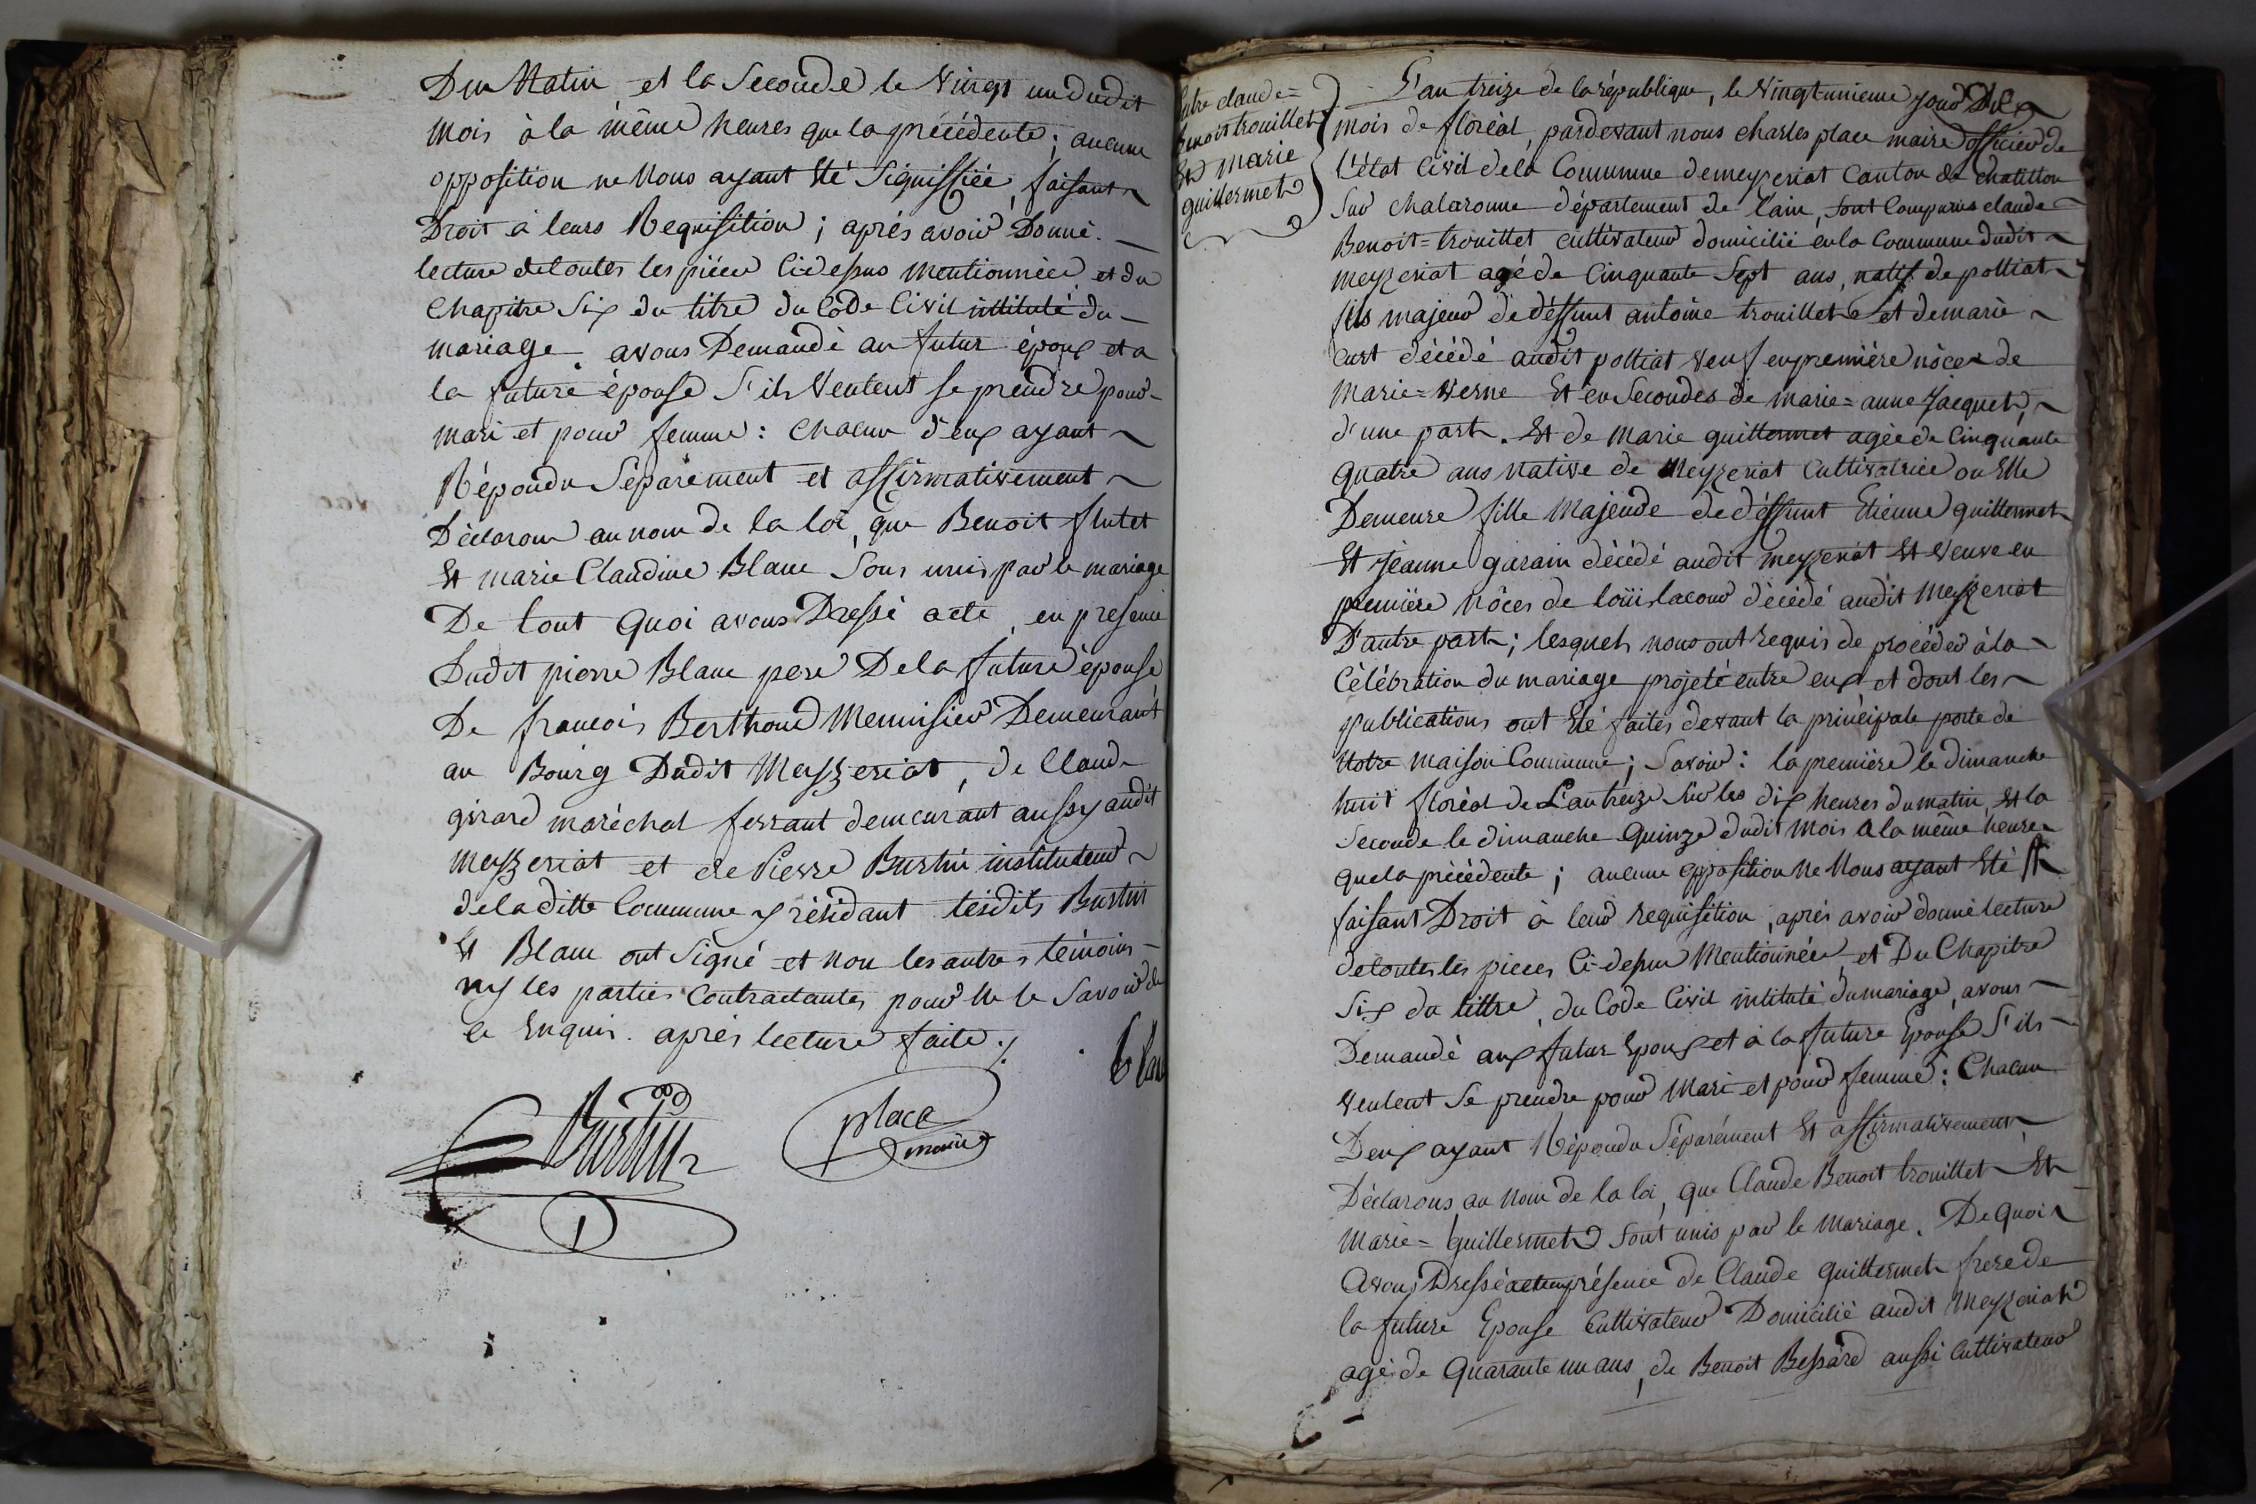 Du Matin et la Seconde le Vingt un dudit
mois à la même heures que la précédente ; aucune
opposition ne Nous ayant été Signiffiée, faisant
Droit à leurs Requisition ; aprés avoir Donné
lecture de toutes les piéces ci dessus mentionnées et du
Chapitre Six du titre du Code Civil intitulé du
mariage avons Demandé au futur époux et a
la future épouse S'ils veulent se prendre pour
mari et pour femme : Chacun d'eux ayant
Répondu Séparément et affirmativement
Déclarons au nom de la loi, que Benoit flutet
Et marie Claudine Blanc Sont unis par le mariage
De tout Quoi avons Dressé acte, en presence
Dudit pierre Blanc pere De la future épouse
De francois Berthoud Menuisier Demeurant
au Bourg Dudit Meyzeriat, de Claude
girard maréchal ferrant demeurant aussy audit
meyzeriat et de Pierre Burtin instituteur
de la ditte Commune y résidant lesdits Burtin
Et Blanc ont Signé et non les autres témoins
ny les parties Contractantes pour ne le Savoir de
ce Enquis. aprés lecture faite ./.
blanc
Burtin
place
maire
Entre claude=
Benoit trouillet
Et Marie
guillermet
L'an treize de la république, le Vingtunieme jour du
mois de floréal, pardevant nous charles place maire officier de
L'état Civil de la Commune de meyzeriat Canton de chatillon
Sur chalaronne département de l'ain, Sont Comparus claude
Benoit=trouillet cultivateur domicilié en la Commune dudit
meyzeriat agé de Cinquante Sept ans, natif de polliat
fils majeur de déffunt antoine trouillet et de marie
curt décédé audit polliat veuf en premiére nôces de
marie=verne Et en Secondes de marie=anne Jacquet,
d'une part. Et de Marie guillermet agée de Cinquante
quatre ans Native de Meyzeriat Cultivatrice ou Elle
Demeure fille Majeude de déffunt Etienne guillermet
Et jeanne garain décédé audit meyzeriat Et veuve en
premiére Nôces de loüis lacour décédé audit Meyzeriat
D'autre part ; lesquels nous ont requis de procéder à la
Célébration du mariage projeté entre eux et dont les
publications ont été faites devant la principale porte de
Notre maison Commune ; Savoir : la premiére le dimanche
huit floréal de L'an treize Sur les dix heures du matin, Et la
Seconde le dimanche Quinze dudit mois a la même heure
que la précédente ; aucune opposition Ne Nous ayant Eté
faisant Droit à leur requisition, aprés avoir donné lecture
de toutes les pieces Ci-dessus Mentionnées, et Du Chapitre
Six du tittre, du Code Civil intitulé du mariage, avons
Demandé aux futur Epoux et à la future Epouse S'ils
veulent Se prendre pour Mari et pour femme : Chacun
Deux ayant Répondu Séparément Et affirmativement
Déclarons au Nom de la loi, que Claude Benoit trouillet Et
Marie=Guillermet Sont unis par le Mariage. De quoi
Avons Dressé acte en présence de Claude guillermet frere de
la future Epouse Cultivateur Domicilié audit Meyzeriat
agé de Quarante un ans, de Benoit Bessard aussi Cultivateur